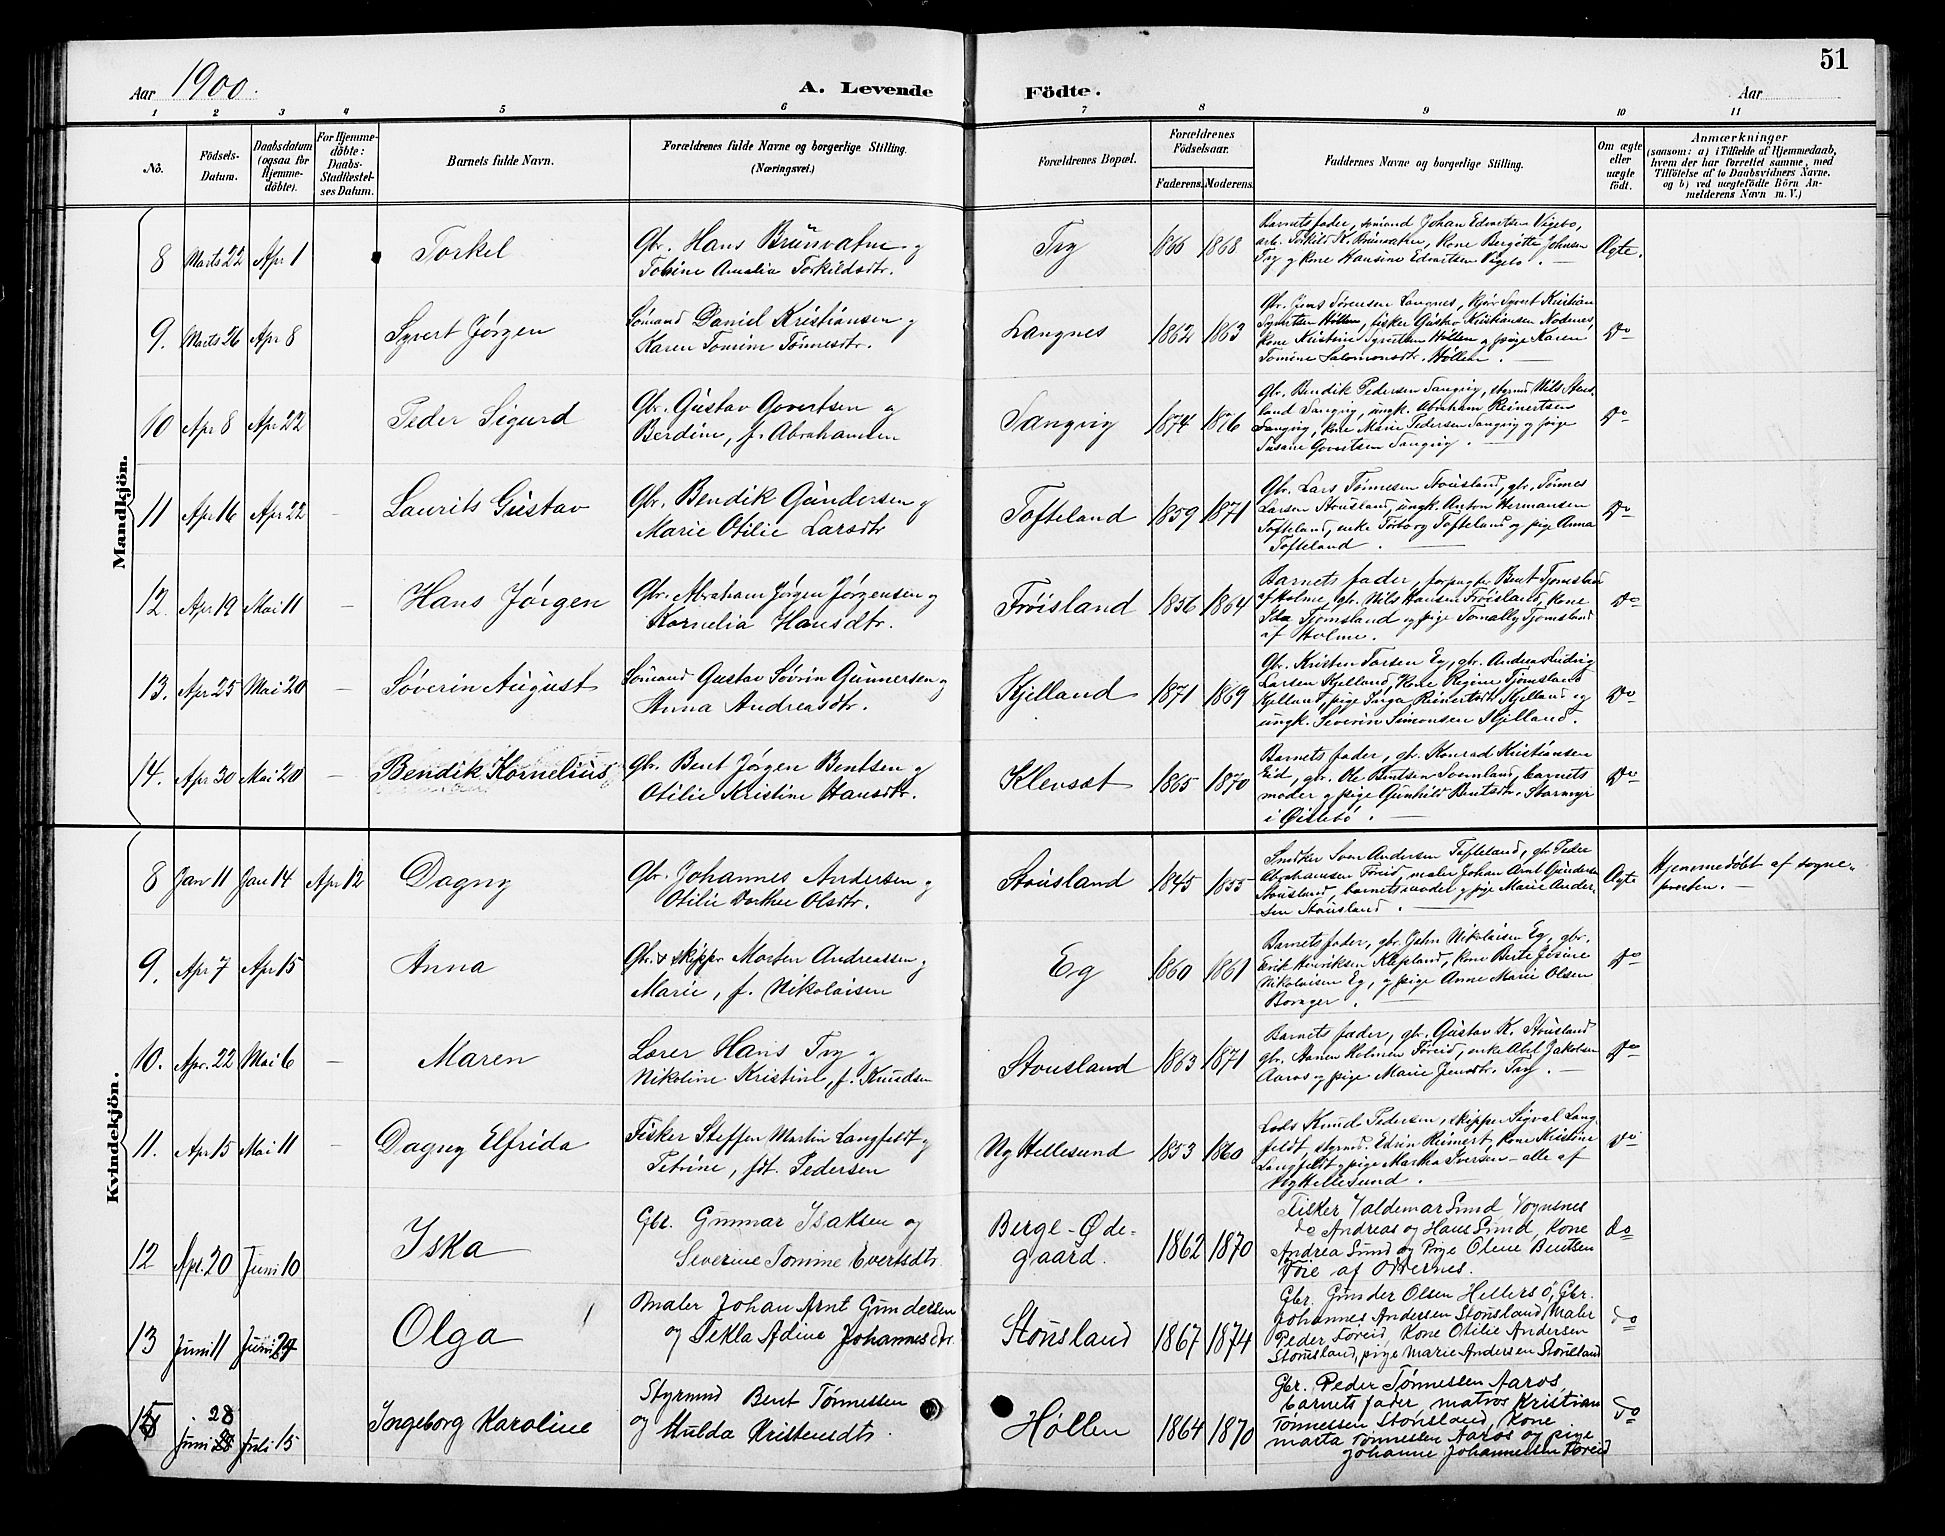 51
Aar 1900.
A. Levende Födte.
Aar
1 2 3 4 5 6 7 8 9 10 11
No.
Födsels-Datum.
Daabsdatum (ogsaa for Hjemme-döbte).
For Hjemme-döbte: Daabs-Stadfæstel-ses Datum.
Barnets fulde Navn.
Forældrenes fulde Navne og borgerlige Stilling.
(Næringsvei.)
Forældrenes Bopæl.
Forældrenes Födselsaar.
Faderens. Moderens.
Faddernes Navne og borgerlige Stilling.
Om ægte eller uægte födt.
Anmærkninger
(saasom: a) i Tilfælde af Hjemmedaab,
hvem der har forrettet samme, med
Tilföielse af to Daabsvidners Navne,
og b) ved uægtefödte Börn An-
melderens Navn m. V.)
Mandkjön.
8 Marts 22 Apr 1 Torkel
Gbr. Hans Brunvatne og
Tobine Amalia Torkildsdtr.
Try 1866 1868
Barnets fader, sømand Johan Edvartsen Vigebo,
arb. Torkild K. Brunvatne, kone Bergitte Johnsen
Try og kone Hansine Edvartsen Vigebo. —
Ægte.
9. Marts 26 Apr 8 Syvert Jørgen
Sømand Daniel Kristiansen og
Karen Tomine Tønnesdtr.
Langnes 1862 1863
Gbr. Jens Sørensen Langnes, Syvert Kristian
Syvertsen Høllen, fisker Gustav Kristiansen Nodenes,
kone Kristine Syvertsen Høllen og pige Karen
Tomine Salomonsdtr. Høllen. —
Do
10 Apr 8 Apr 22 Peder Sigurd
Gbr. Gustav Govertsen og
Berdine, f. Abrahamsen
Sangvig 1874 1876
Gbr. Bendik Pedersen Sangvig, styrmd Nils Stous-
land Sangvig, ungk. Abraham Reinertsen
Sangvig, kone Marie Pedersen Sangvig og pige
Susane Govertsen Sangvig. —
Do
11 Apr 16 Apr 22 — Laurits Gustav
Gbr. Bendik Gundersen og
Marie Otilie Larsdtr
Tofteland 1859 1871
Gbr. Lars Tønnesen Stousland, gbr. Tønnes
Larsen Stousland, ungk. Anton Hermansen
Tofteland, enke Torborg Tofteland og pige Anna
Tofteland. —
Do
12. Apr 19 Mai 11 — Hans Jørgen
Gbr. Abraham Jørgen Jørgensen og
Kornelia Hansdtr.
Frøisland 1856 1864
Barnets fader, forpagter Bent Tjomsland
af Holme, gbr. Nils Hansen Frøisland, kone
Ida Tjomsland og pige Tomally Tjomsland
af Holme.
Do
13. Apr 25 Mai 20 — Søverin August
Sømand Gustav Søvrin Gunnersen og
Anna Andreasdtr.
Kjelland 1871 1869
Gbr. Kristen Torsen Eg, gbr. Andreas Ludvig
Larsen Kjelland, kone Regine Tjomsland
Kjelland, pige Inga Reinertsdtr. Kjelland og
ungk. Severin Simonsen Kjelland.
Do
14. Apr 30 Mai 20 — Bendik Kornelius
Gbr. Bent Jørgen Bentsen og
Otilie Kristine Hansdtr.
Klevset 1865 1870
Barnets fader, gbr. Konrad Kristiansen
Eid, gbr. Ole Bentsen barnets
moder og pige Gunhild Bentsdtr. Stormyr
i Øislebø. —
Do
Kvindekjön.
8 Jan 11 Jan 14 Apr 12 Dagny
Gbr. Johannes Andersen og
Otilie Dorthee Olsdtr.
Stousland 1845 1855
Snedker Sven Andersen Tofteland, gbr. Peder
Abrahamsen Føreid, maler Johan Arnt Gundersen
Stousland, barnets moder og pige Marie Ander-
sen Stousland. —
Ægte
Hjemmedøbt af sogne-
presten. —
9. Apr 7 Apr 15 Anna
Gbr. & skippr Morten Andreassen og
Marie, f. Nikolaisen
Eg 1860 1861
Barnets fader, gbr. John Nikolaisen Eg, gbr.
Eerik Henriksen Klepland, kone Berte Jesine
Nikolaisen Eg, og pige Anne Marie Olsen
. —
Do
10. Apr. 22 Mai 6 — Maren
Lærer Hans Try og
Nikoline Kristine, f. Knudsen
Stousland 1863 1871
Barnets fader, gbr. Gustav K. Stousland
gbr. Aanen Holmen Føreid, enke Abel Jakobsen
Aaros og pige Marie Jensdtr. Try. —
Do
11. Apr 15 Mai 11 — Dagny Elfrida
Fisker Steffen Martin Langfeldt og
Petrine, fdt. Pedersen
Ny Hellesund 1853 1860
Lods Knud Pedersen, skipper Sigval Lang-
feldt, styrmd. Edvin Reinert, kone Kristine
Langfeldt og pige Martha Iversen — alle af
Ny Hellesund. —
Do
12 Apr. 20 Juni 10 Iska
Gbr. Gunnar Isaksen og
Severine Tomine Evertsdtr.
Berge-Øde-
gaard. 1862 1870
Fisker Valdemar Sund,
do Andreas og Hans Sund, kone
Andrea Sund og Pige Olene Bentsen
Føie af Oddernes.
do
13 Juni 11 Juni 24 Olga
Maler Johan Arnt Gundersen
og Tekla Adine Johannesdtr.
Stousland 1867 1874
Gbr. Gunder Olsen Hellersø, Gbr.
Johannes Andersen Stousland, Maler
Peder Føreid, Kone Otilie Andersen
Stousland, pige Marie Andersen Stousland
do
15 Juni 28 Juli 15 Ingeborg Karoline
Styrmd Bent Tønnessen
og Hulda Kristensdtr.
Høllen 1864 1870
Gbr. Peder Tønnessen Aaros,
barnets fader, matros Kristian
Tønnessen Stousland, Kone
Marta Tønnessen Aaros og pige
Johanne Johannessen Føreid
do